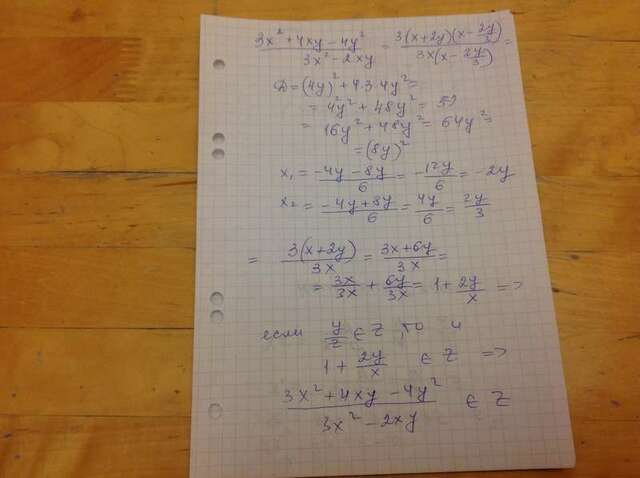 (3x² + 4xy - 4y²)/(3x² - 2xy) = 3(x+2y)(x - 2y/3)/3x(x - 2y/3) =
D = (4y)² + 4·3·4y² =
= 4²y² + 48y² =
= 16y² + 48y² = 64y² =
= (8y)²
x₁ = (-4y - 8y)/6 = -12y/6 = -2y
x₂ = (-4y + 8y)/6 = 4y/6 = 2y/3
= 3(x+2y)/3x = (3x+6y)/3x =
= 3x/3x + 6y/3x = 1 + 2y/x =>
если y/z ∈ Z, то и
1 + 2y/x ∈ Z =>
(3x² + 4xy - 4y²)/(3x² - 2xy) ∈ Z